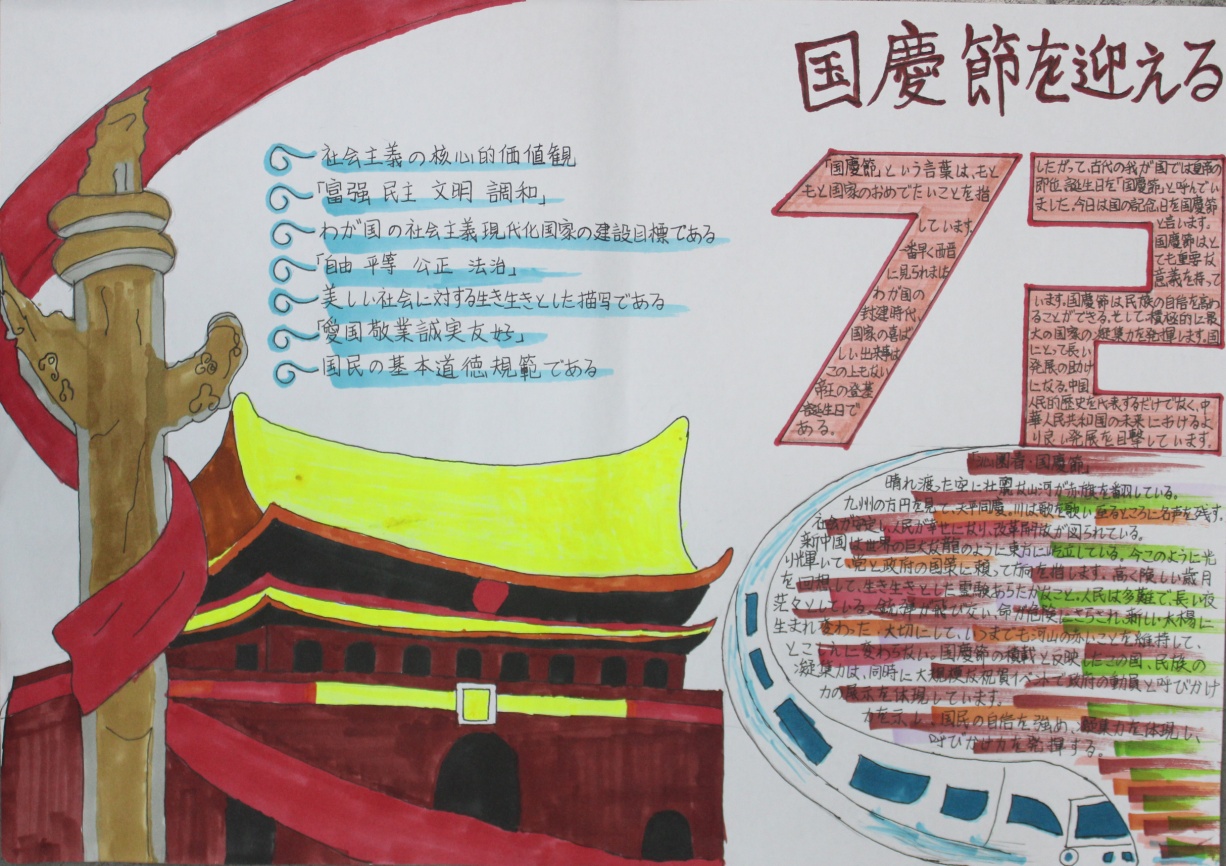 国慶節を迎える
社会主義の核心的価値観
「富强 民主 文明 調和」
わが国の社会主義現代化国家の建設目標である
「自由 平等 公正 法治」
美しい社会に対する生き生きとした描写である
「愛国敬業誠実友好」
国民の基本道徳規範である
「国慶節」という言葉は、もと
もと国家のおめでたいことを指
しています。
一番早く西晋
に見られました
わが国の
封建時代、
国家の喜ば
しい出来事は
この上もない
帝王の登基
誕生日で
ある。
したがって、古代の我が国では皇帝の
即位、誕生日を「国慶節」と呼んでい
ました。今日は国の記念日を国慶節
と言います。
国慶節はと
ても重要な
意義を持って
います。国慶節は民族の自信を高め
ることができる。そして、積極的に最
大の国家の凝集力を発揮します。国
にとって長い
発展の助け
になる。中国
人民的歴史を代表するだけでなく、中
華人民共和国の未来におけるよ
り良い発展を目撃しています。
「沁園春・国慶節」
晴れ渡った空に壮麗な山河が赤旗を翻している。
九州の方円を見て、天平同慶。川は歌を歌い、至るところに名声を残す。
社会が安定し、人民が幸せになり、改革開放が図られている。
新中国は世界の巨大な龍のように東方に屹立している。今このように光
り輝いて、党と政府の国策に頼って方向を指します。高く険しい歳月
を回想して、生き生きとした霊験あらたかなこと。人民は多難で、長い夜
茫々としている。命が危険にさらされ、新しい太陽に
生まれ変わった 大切にして、いつまでも河山の赤いことを維持して、
とこしえに変わらない。国慶節の積載と反映したこの国、民族の
凝集力は、同時に大規模な祝賀イベントで政府の動員と呼びかけ
力の展示を体現しています。
力を示し、国民の自信を強め、凝集力を体現し
呼びかけ力を発揮する。